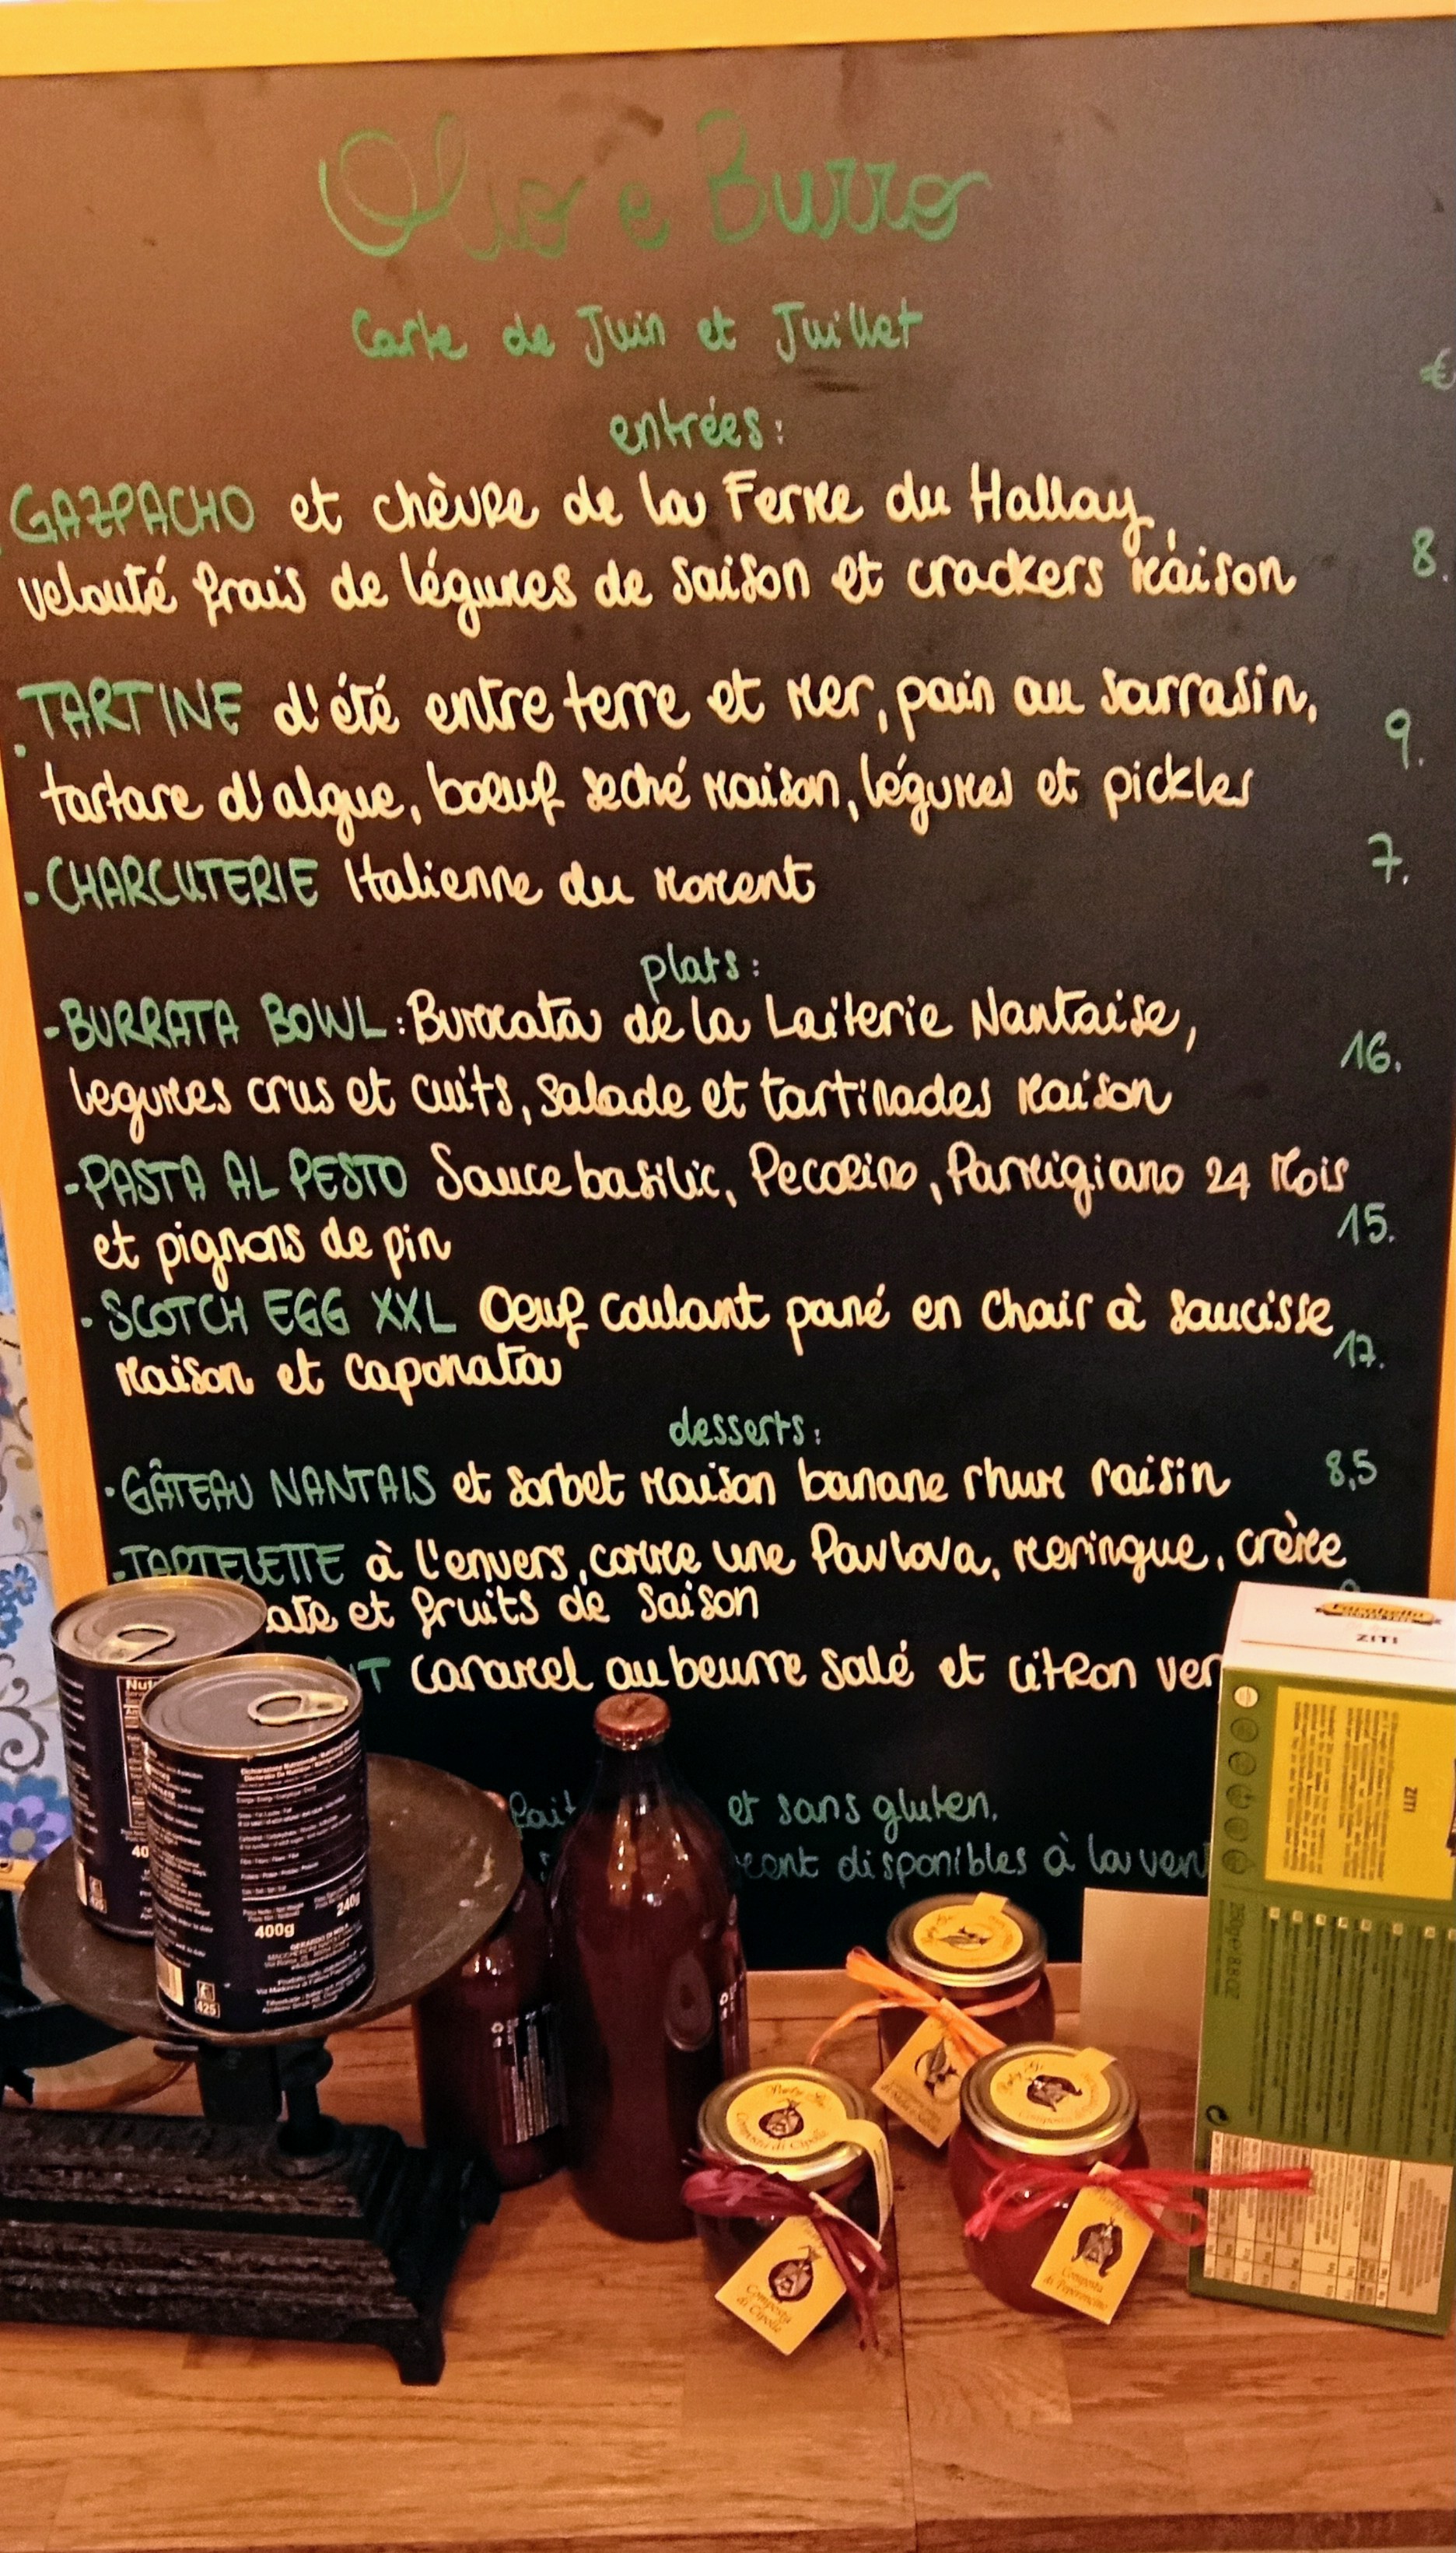 Olio e Burro
Carte de Juin et Juillet
€
entrées:
GAZPACHO et chèvre de la Ferme du Hallay,
8.
velouté frais de légumes de saison et crackers maison
. TARTINE d'été entre terre et mer, pain au sarrasin,
9.
tartare d'algue, boeuf seché maison, légumes et pickles
. CHARCUTERIE Italienne du moment
7.
plats:
-BURRATA BOWL: Burrata de la Laiterie Nantaise,
16.
legumes crus et cuits, salade et tartinades maison
-PASTA AL PESTO Sauce basilic, Pecorino, Parmigiano 24 Mois
15.
et pignons de pin
. SCOTCH EGG XXL Oeuf coulant pané en chair à saucisse
17.
Maison et caponata
desserts:
. GÂTEAU NANTAIS et sorbet maison banane rhum raisin 8,5
-TARTELETTE à l'envers, comme une Pavlova, meringue, crème
et fruits de saison
caramel au beurre salé et citron ver
fait et sans gluten.
disponibles à la ven
400g
240g
425
ZITI
ZITI
250g e 8.8 OZ
Composta di Cipolle
Composta
di Cipolle
Composta
di Peperoncino